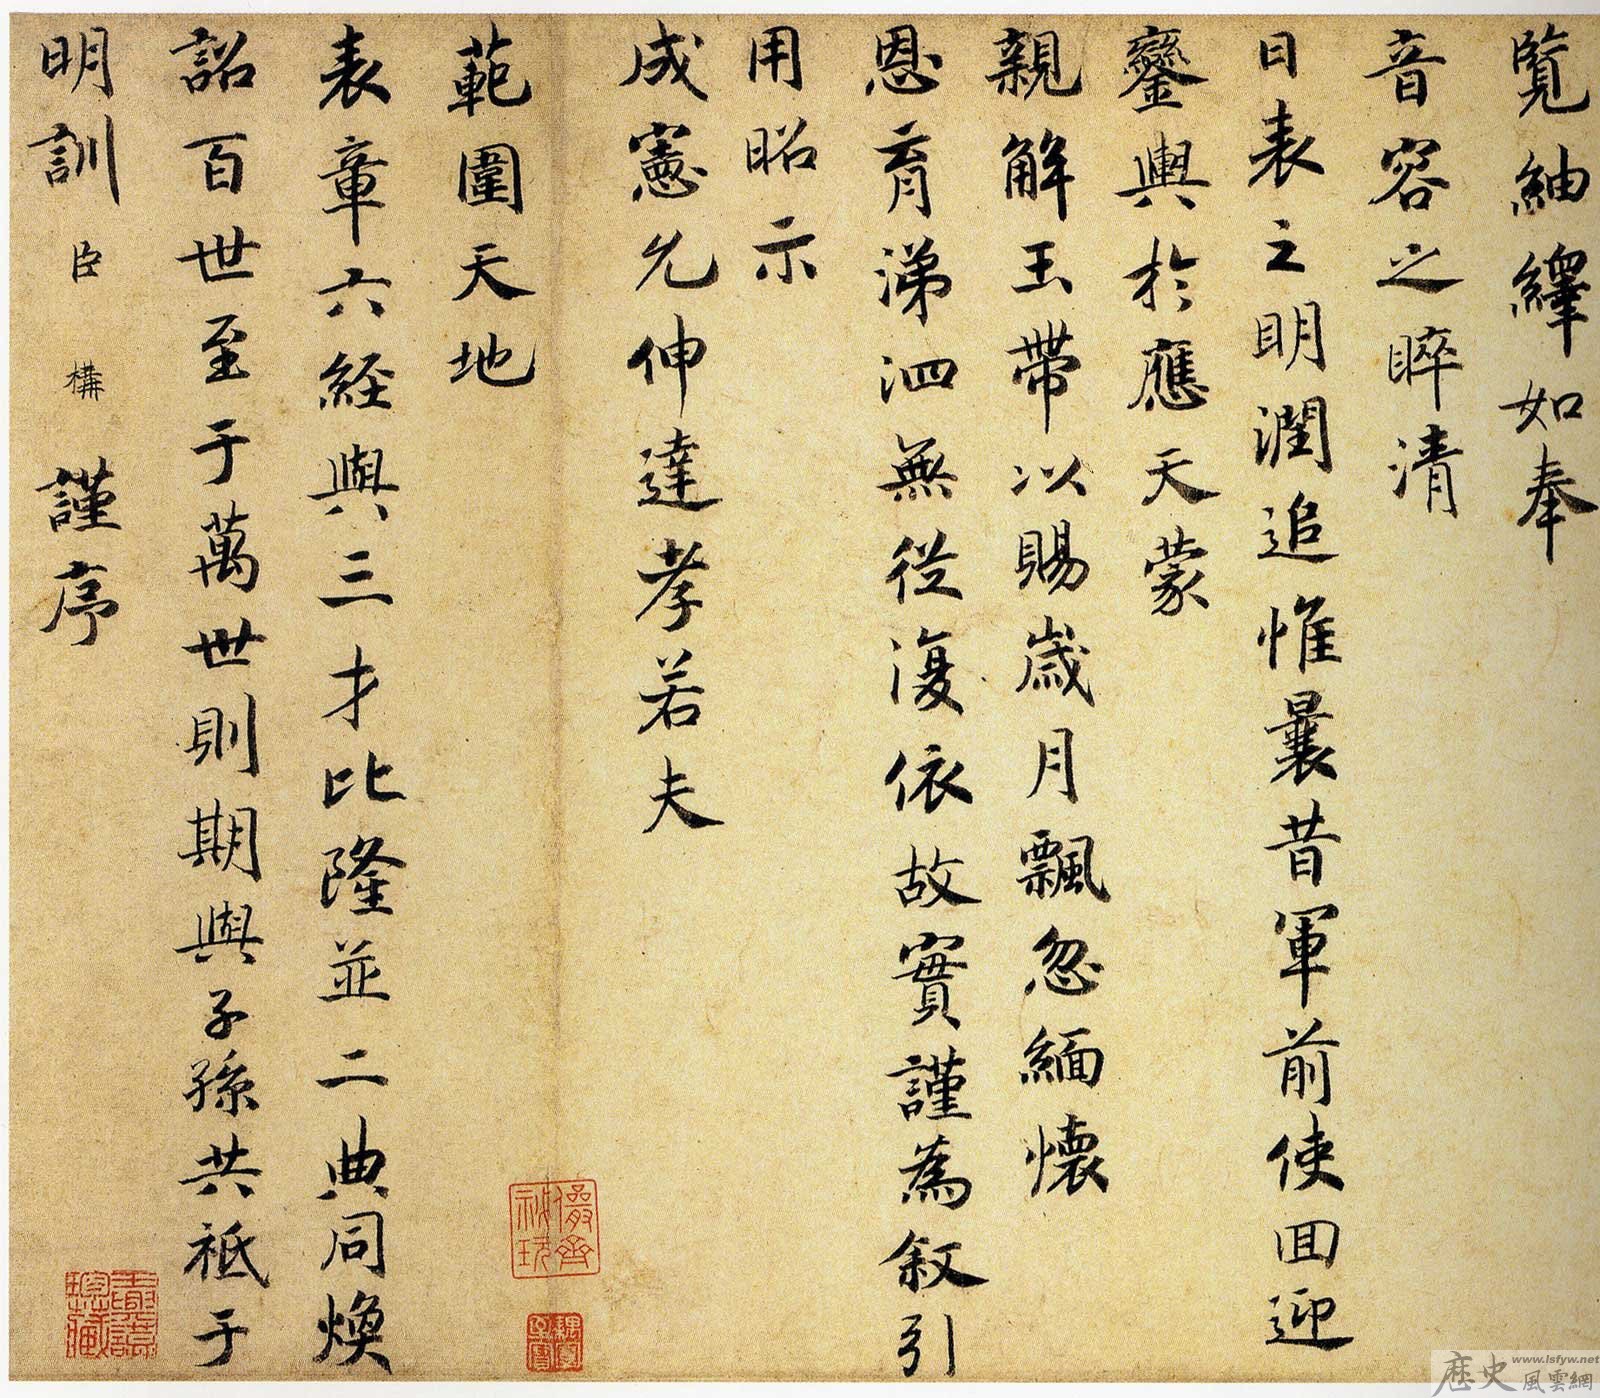 覽紬繹如奉
音容之睟清
日表之明潤追惟曩昔軍前使回迎
鑾輿於應天蒙
親解玉帶以賜歲月飄忽緬懷
恩育涕泗無從復依故實謹為叙引
用昭示
成憲允伸達孝若夫
範圍天地
表章六經與三才比隆並二典同煥
詔百世至于萬世則期與子孫共祗于
明訓臣構謹序
儼齋秘玩
歷史風雲網
www.lsfyw.net